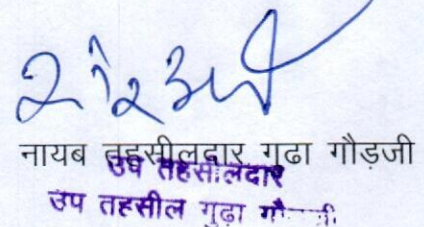 नायब तहसीलदार गुढा गौड़जी
उप तहसीलदार
उप तहसील गुढा